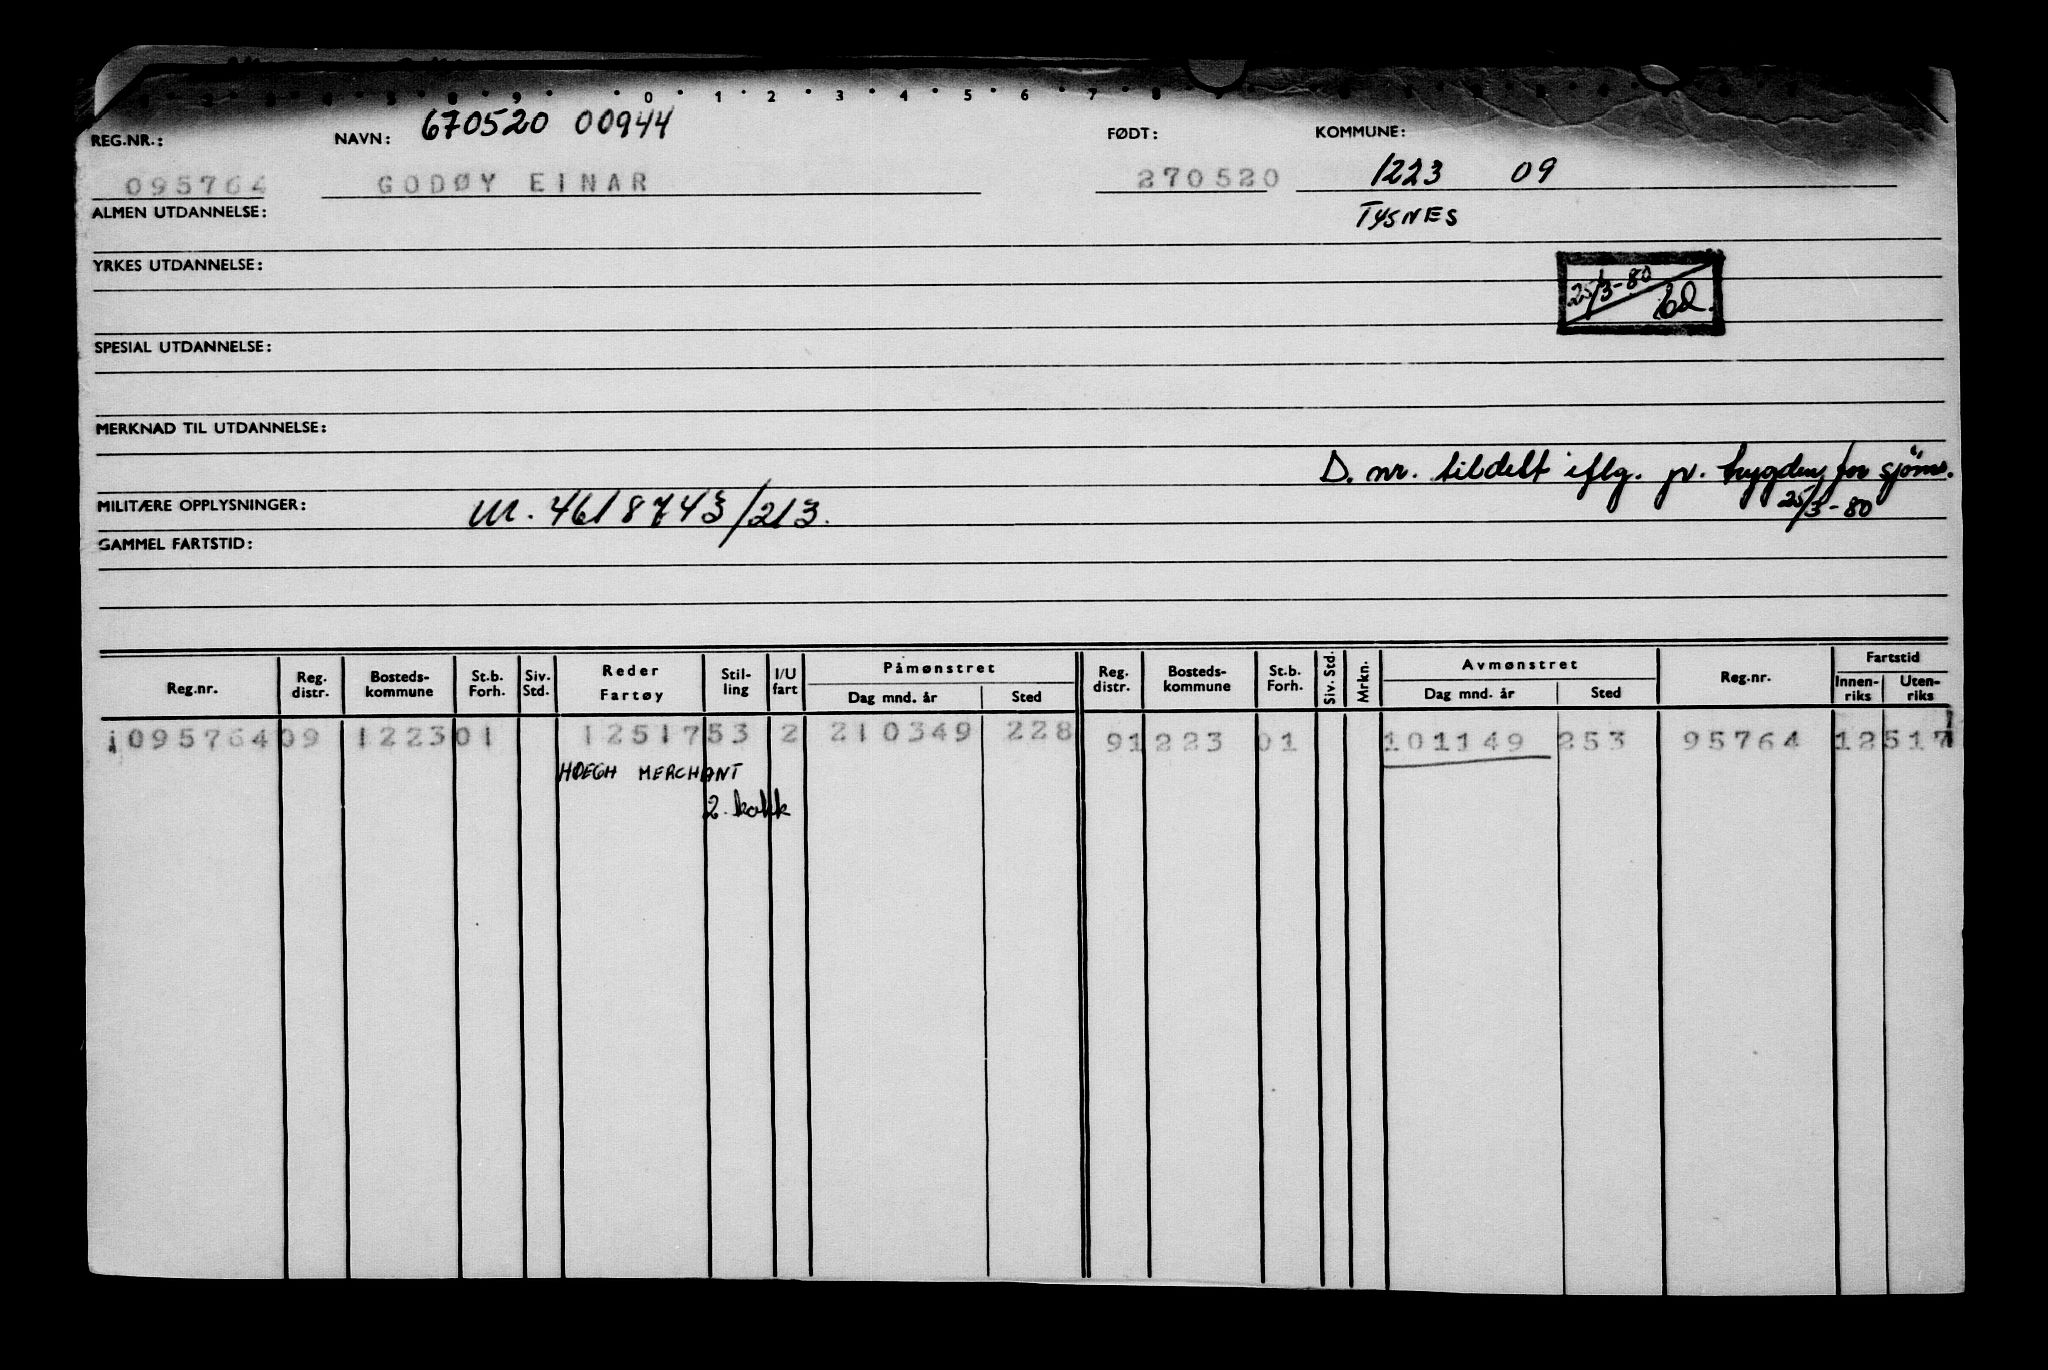 0 1 2 3 4 5 6 7 8
670520 00944
REG.NR.: NAVN: FØDT: KOMMUNE:
095764 GODØY EINAR 270520 1223 09
ALMEN UTDANNELSE: TYSNES
YRKES UTDANNELSE:
25/3-80
SPESIAL UTDANNELSE:
MERKNAD TIL UTDANNELSE:
D. nr. tildelt iflg. pv. trygden for sjøm.
25/3-80
MILITÆRE OPPLYSNINGER: M. 4618743/213.
GAMMEL FARTSTID:
Reg.nr. Reg. distr. Bosteds-kommune St.b. Forh. Siv. Std. Reder Fartøy Stil-ling I/U fart Påmønstret Dag mnd. år Sted Reg. distr. Bosteds-kommune St.b. Forh. Siv. Std. Mrkn. Avmønstret Dag mnd. år Sted Reg.nr. Fartstid Innen-riks Uten-riks
095764 09 1223 01 12517 53 2 210349 228 91223 01 101149 253 95764 12517
HØEGH MERCHANT
2. kokk